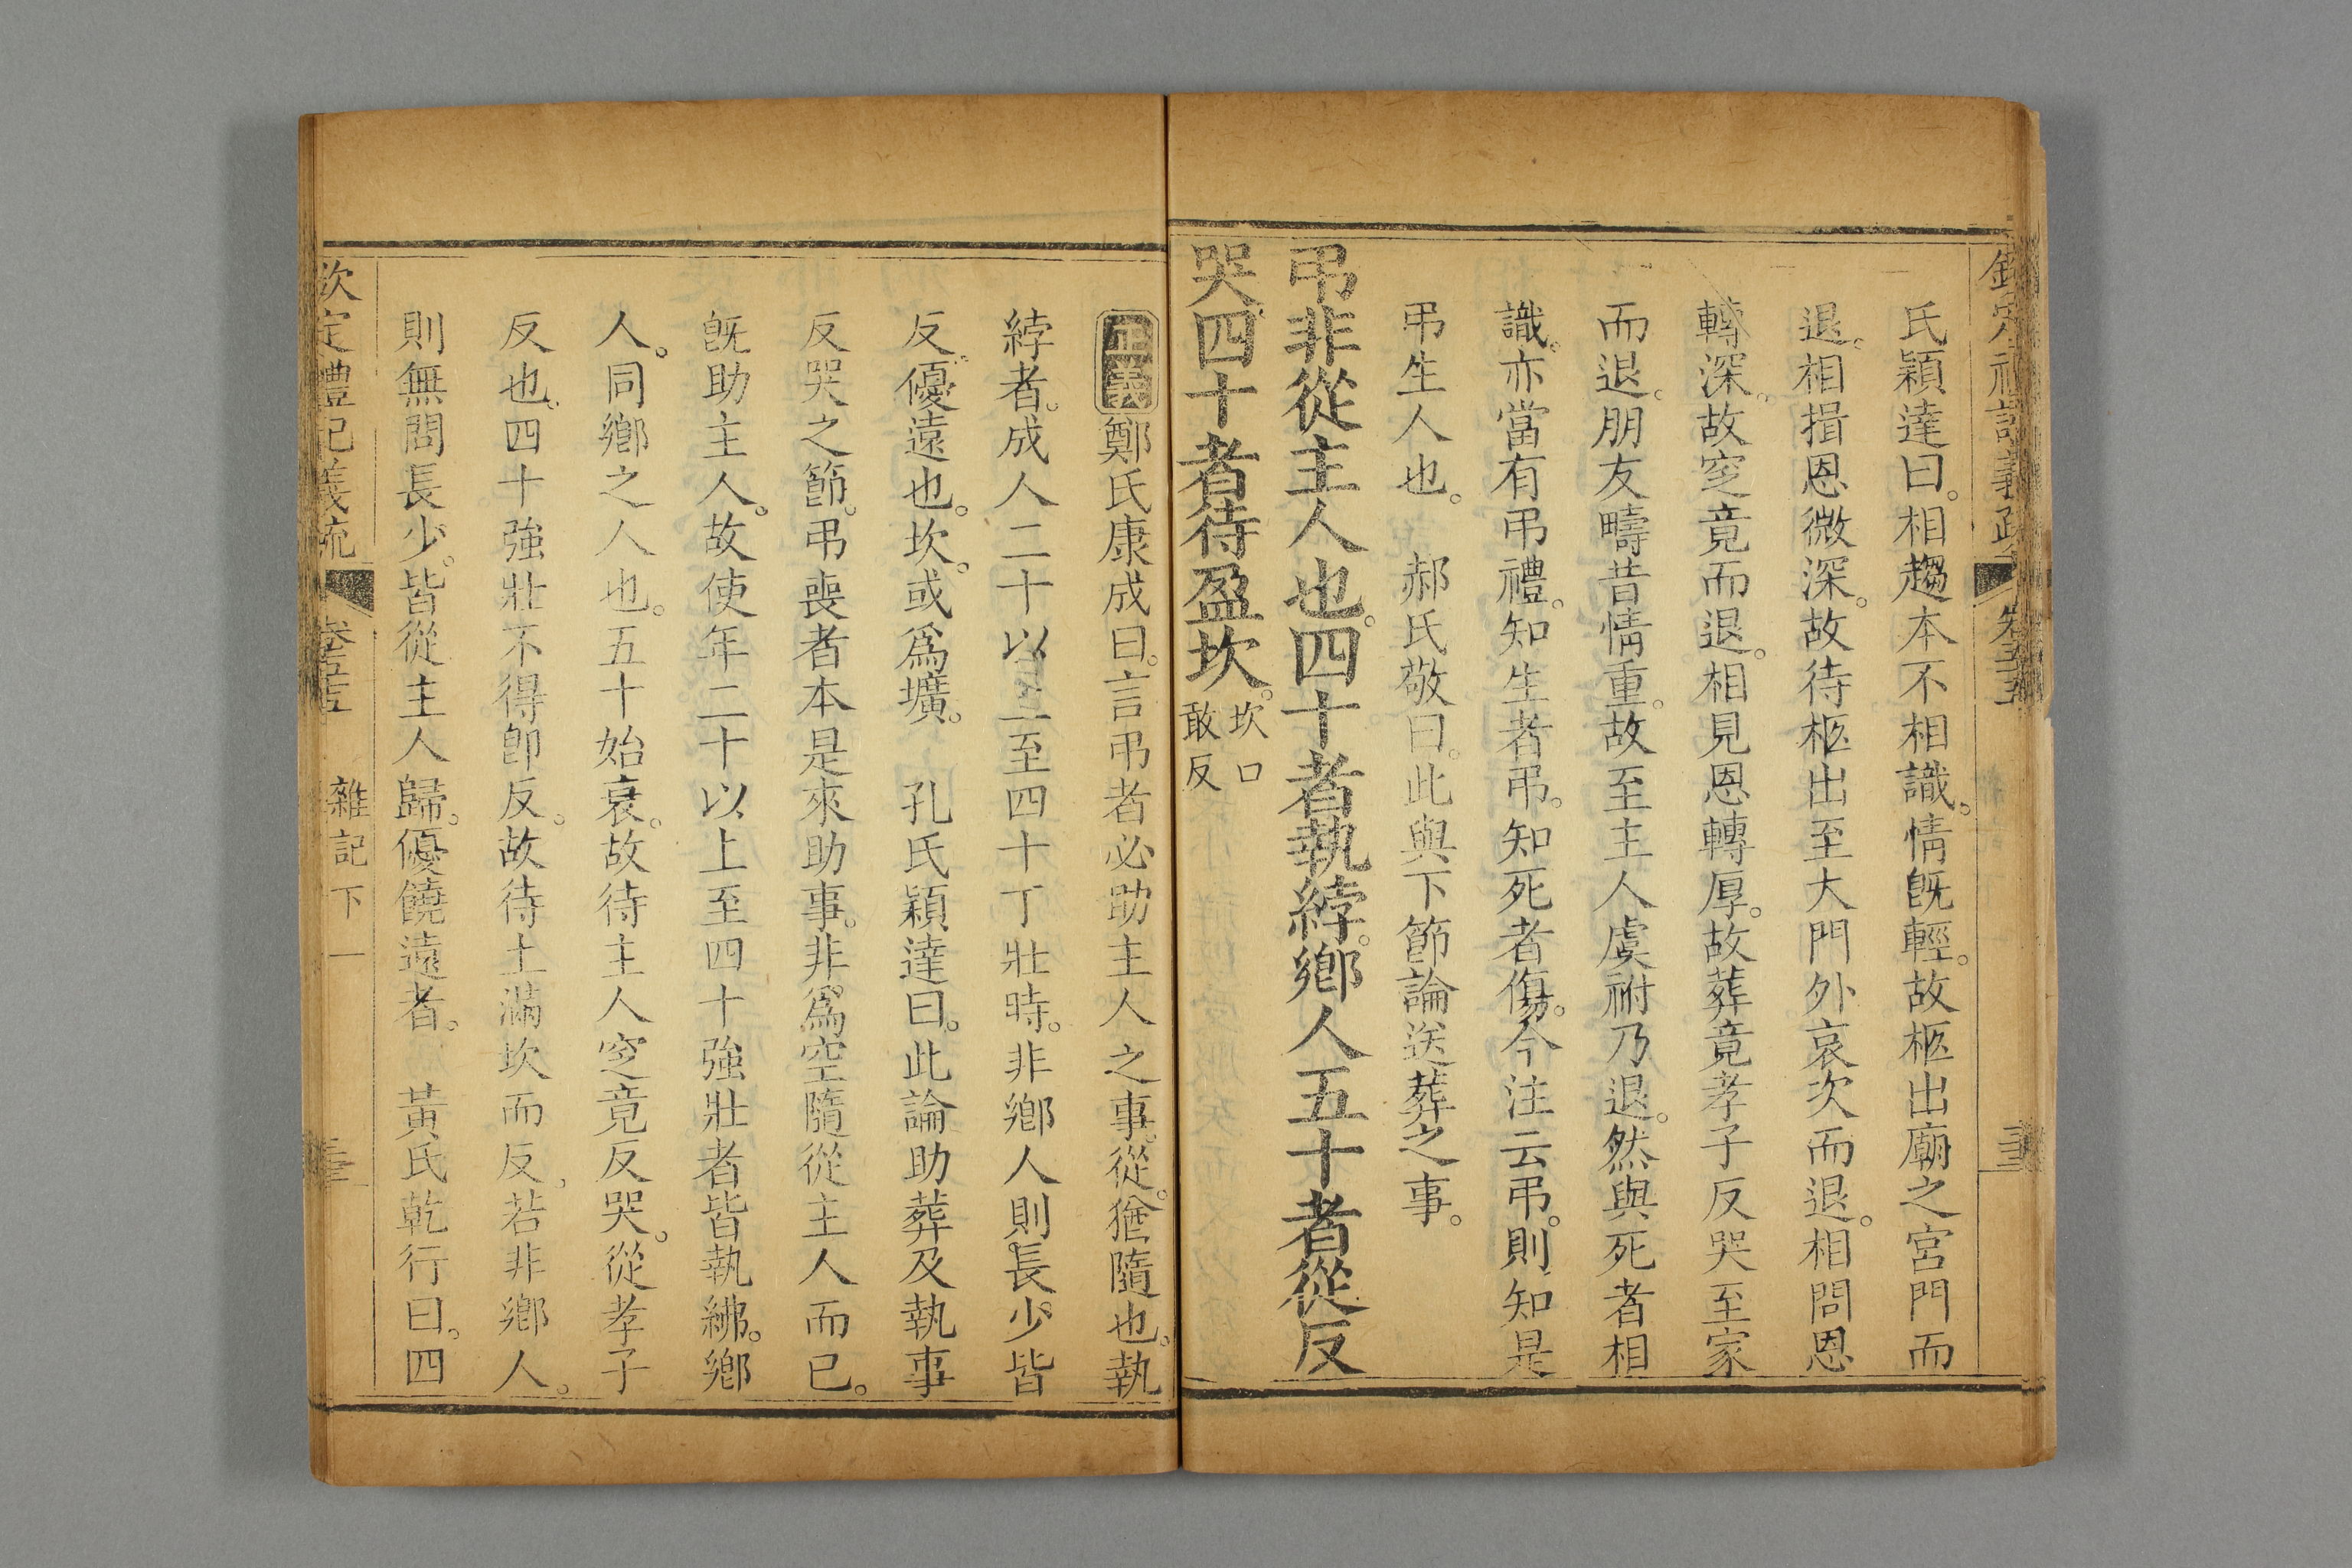 欽定禮記義疏 卷五十五
氏穎達曰。相趨本不相識。情旣輕。故柩出廟之宮門而
退。相揖恩微深。故待柩出至大門外哀次而退。相問恩
轉深。故窆竟而退。相見恩轉厚。故葬竟孝子反哭至家
而退。朋友疇昔情重。故至主人虞祔乃退。然與死者相
識。亦當有弔禮。知生者弔。知死者傷。今注云弔。則知是
弔生人也。 郝氏敬曰。此與下節論送葬之事。
弔非從主人也。四十者執綍。鄉人五十者從反
哭。四十者待盈坎。坎口敢反
正義鄭氏康成曰。言弔者必助主人之事。從。猶隨也。執
綍者。成人二十以上至四十丁壯時。非鄉人則長少皆
反。優遠也。坎。或爲壙。 孔氏穎達曰。此論助葬及執事
反哭之節。弔喪者本是來助事。非爲空隨從主人而已。
旣助主人。故使年二十以上至四十強壯者皆執紼。鄉
人。同鄉之人也。五十始衰。故待主人窆竟反哭。從孝子
反也。四十強壯不得卽反。故待土滿坎而反。若非鄉人。
則無問長少。皆從主人歸。優饒遠者。 黃氏乾行曰。四
欽定禮記義疏 卷五十五 雜記下一